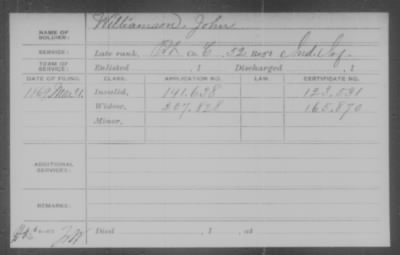 NAME OF SOLDIER: Williamson, John
SERVICE: Late rank, Co. C, 52 Reg't Ind. Inf.
TERM OF SERVICE: Enlisted , 1 Discharged , 1
DATE OF FILING. CLASS. APPLICATION NO. LAW. CERTIFICATE NO.
Invalid, 141.638 123.031
Widow, 207.828 165.870
Minor,
ADDITIONAL SERVICES:
REMARKS:
Died , 1 , at